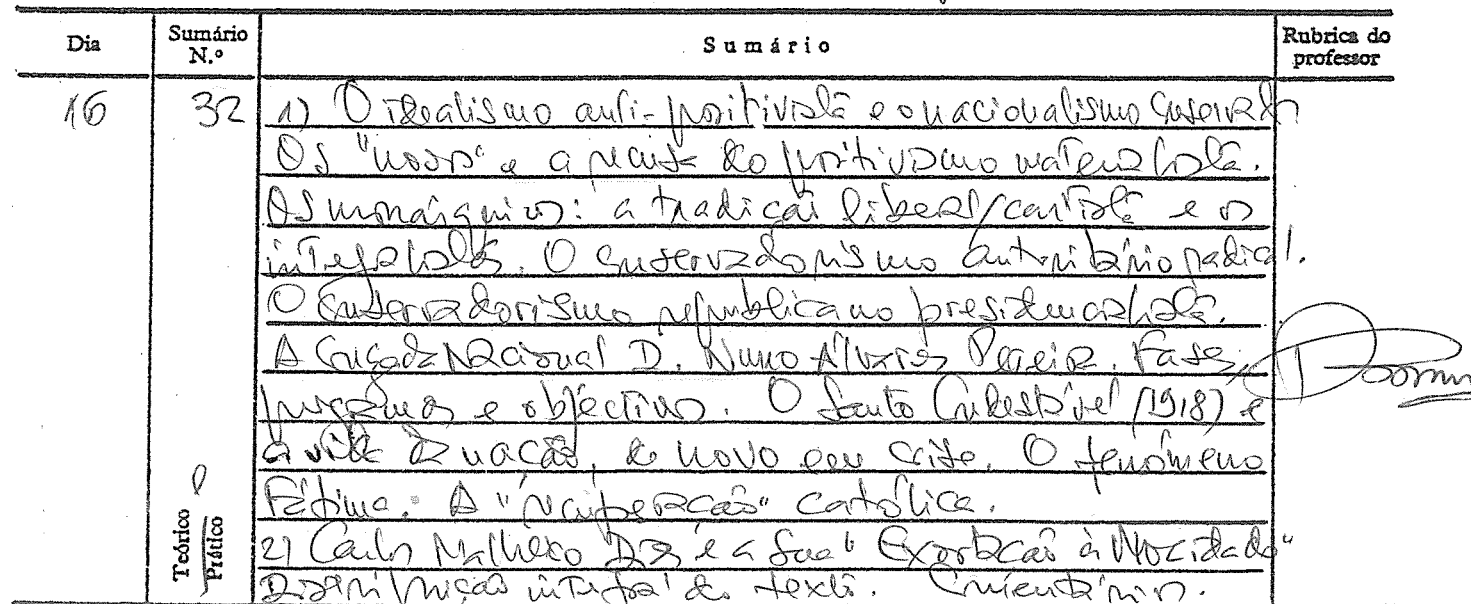 Dia Sumário N.º Sumário Rubrica do professor
16 32 1) O idealismo anti-positivista e o nacionalismo conservador
Os "novos" e a recusa do positivismo materialista.
Os monárquicos: a tradição liberal/cartista e os
integralistas. O conservadorismo autoritário radical.
O conservadorismo republicano presidencialista.
A Cruzada Nacional D. Nuno Álvares Pereira. Fases,
programas e objectivos. O Santo Condestável (1918) e
a vida da nação, de novo em crise. O fenómeno
Fátima. A "recuperação" católica.
Teórico Prático
2) Carlos Malheiro Dias e a sua "Exortação à Mocidade"
integral do texto. Comentários.